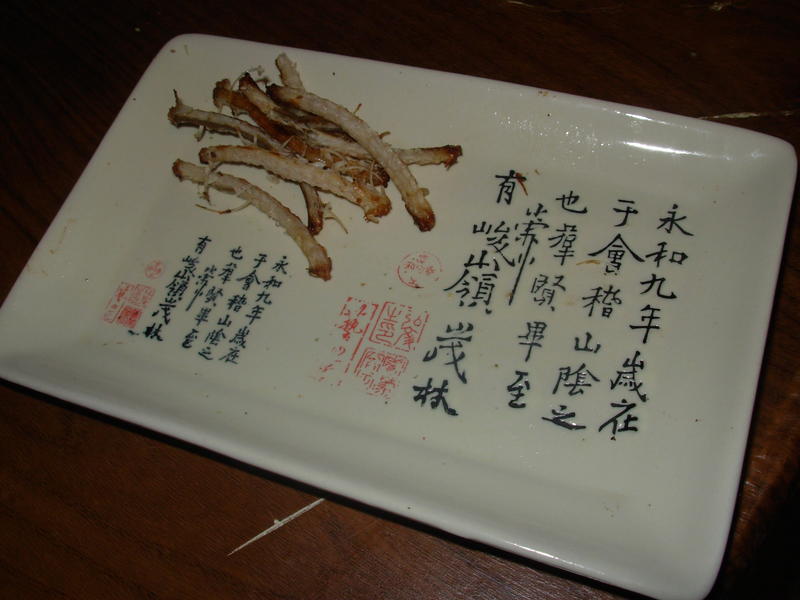 永和九年歲在
于會稽山陰之
也羣賢畢至
有峻嶺茂林
永和九年歲在
于會稽山陰之
也羣賢畢至
有峻嶺茂林